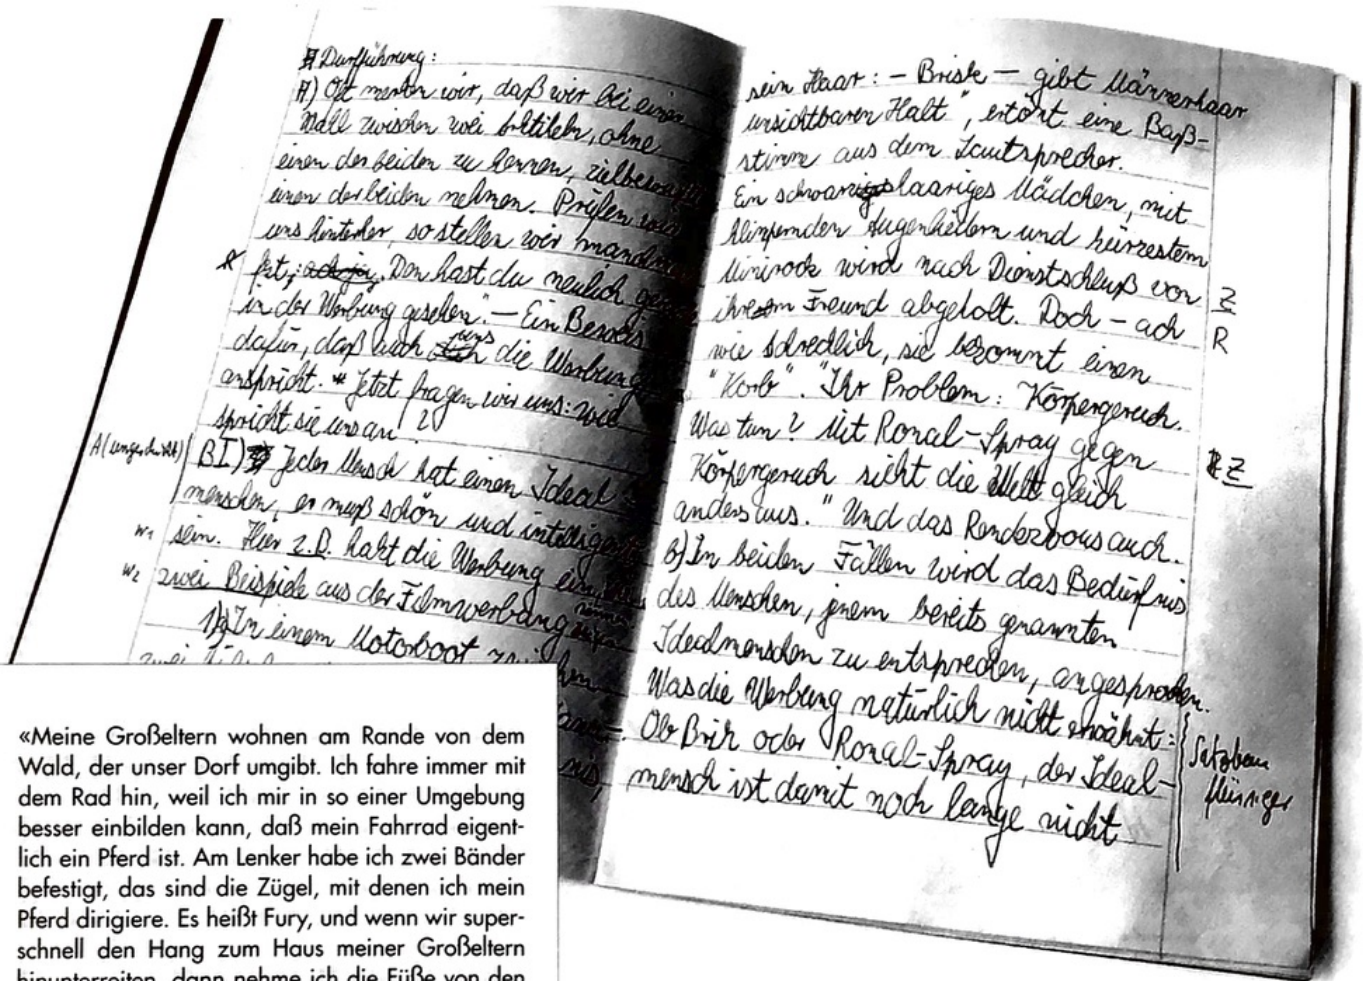 Durfführung:
A) Oft merken wir, daß wir bei einer
Wahl zwischen zwei Artikeln, ohne
einen der beiden zu kennen, zielbewußt
einen der beiden nehmen. Prüfen wir
uns hinterher, so stellen wir manchmal
fest: Den hast du neulich
in der Werbung gesehen". – Ein Beweis
dafür, daß auch uns die Werbung
anspricht. Jetzt fragen wir uns: wie
spricht sie uns an?
A (ungeschickt)
BI) Jeder Mensch hat einen Ideal-
menschen, er muß schön und intelligent
W1
sein. Hier z.B. hakt die Werbung ein
W2
zwei Beispiele aus der Filmwerbung
1) In einem Motorboot
sein Haar: – Brisk – gibt Männerhaar
unsichtbaren Halt", ertönt eine Baß-
stimme aus dem Lautsprecher.
Ein schwarzhaariges Mädchen, mit
klimpernden Augenliedern und kürzestem
Minirock wird nach Dienstschluß von
Z
ihrem Freund abgeholt. Doch – ach
R
wie schrecklich, sie bekommt einen
"Korb". "Ihr Problem: Körpergeruch.
Was tun? Mit Ronal-Spray gegen
Z
Körpergeruch sieht die Welt gleich
anders aus." Und das Rendezvous auch.
b) In beiden Fällen wird das Bedürfnis
des Menschen, jenem bereits genannten
Idealmenschen zu entsprechen, angesprochen.
Was die Werbung natürlich nicht erwähnt:
Ob Brik oder Ronal-Spray, der Ideal-
mensch ist damit noch lange nicht
Satzbau
flüssiger
«Meine Großeltern wohnen am Rande von dem
Wald, der unser Dorf umgibt. Ich fahre immer mit
dem Rad hin, weil ich mir in so einer Umgebung
besser einbilden kann, daß mein Fahrrad eigent-
lich ein Pferd ist. Am Lenker habe ich zwei Bänder
befestigt, das sind die Zügel, mit denen ich mein
Pferd dirigiere. Es heißt Fury, und wenn wir super-
schnell den Hang zum Haus meiner Großeltern
hinunterreiten, dann nehme ich die Füße von den